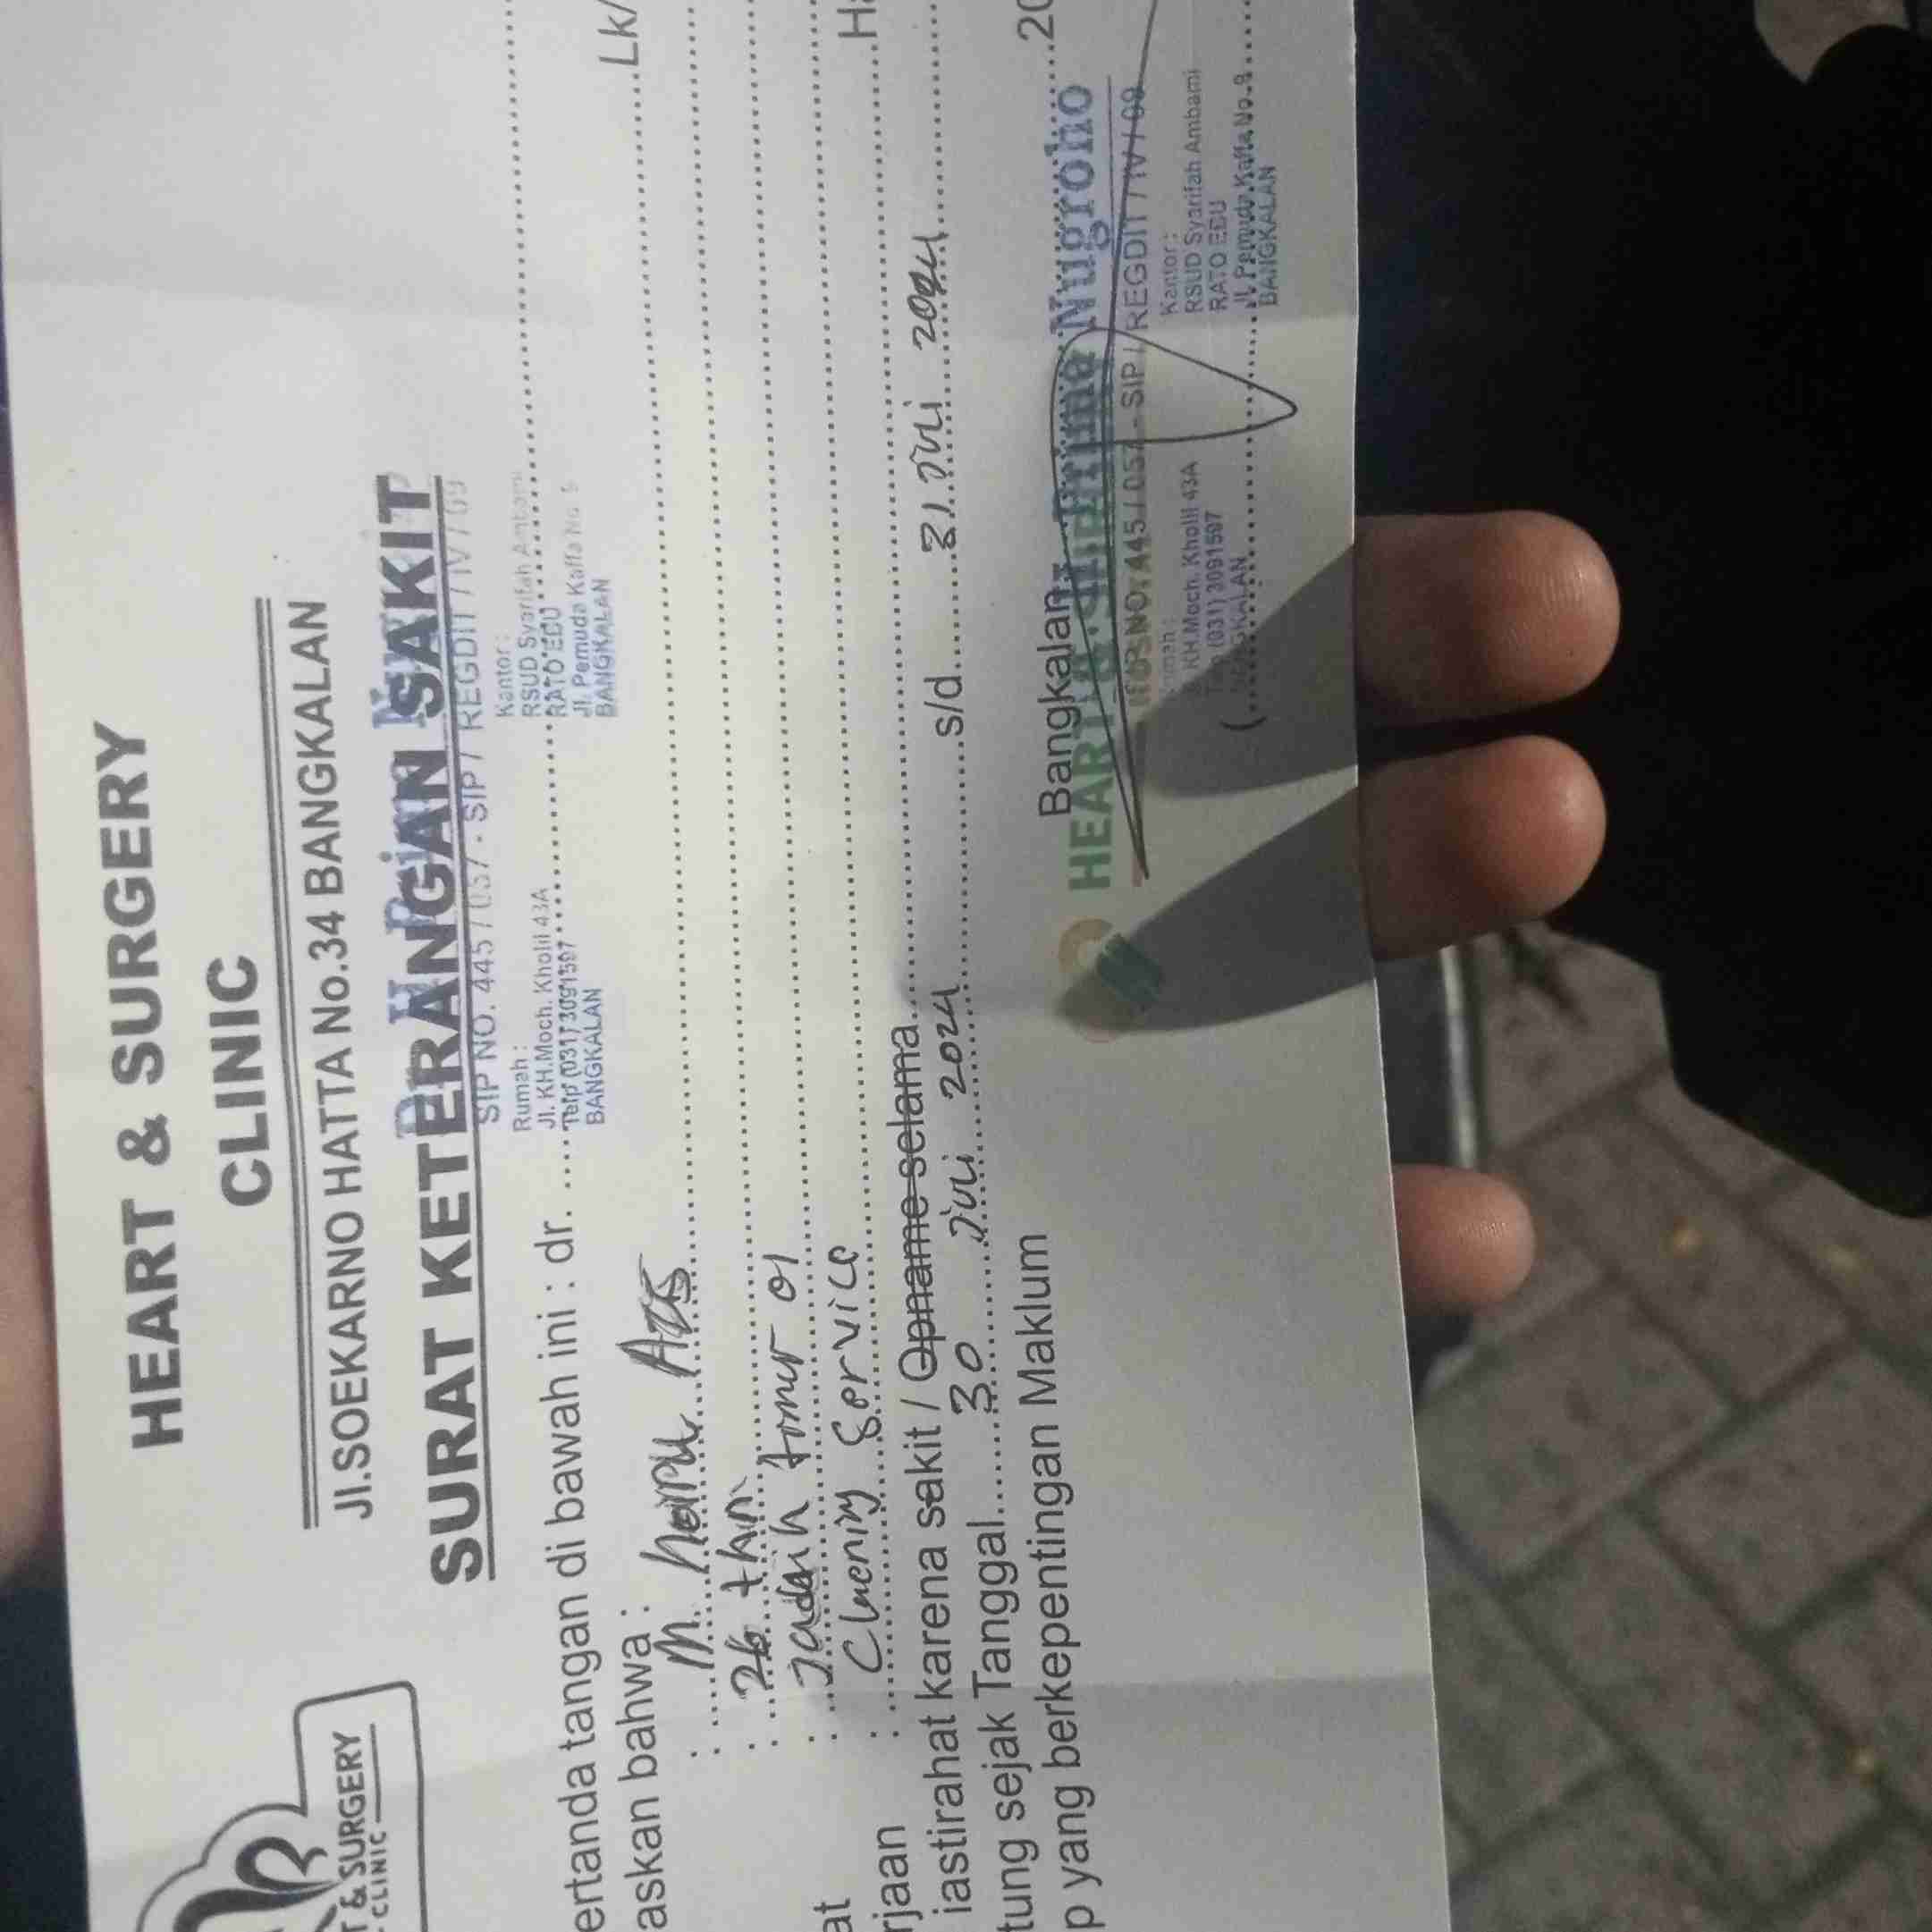 HEART & SURGERY
CLINIC
Jl.SOEKARNO HATTA No.34 BANGKALAN
T & SURGERY
CLINIC
SURAT KETERANGAN SAKIT
SIP NO. 445 / 057 - SIP / REGDIT / IV / 09
Rumah :
Jl. KH.Moch. Kholil 43A
Telp (031) 3091597
BANGKALAN
Kantor :
RSUD Syarifah Ambami
RATO EBU
Jl. Pemuda Kaffa No.
BANGKALAN
ertanda tangan di bawah ini : dr.
askan bahwa :
: M. Az5 Lk/
: 26 thn
at : Jaddih Timur 01
rjaan : Cluening Service Ha
iastirahat karena sakit / Opname selama
tung sejak Tanggal 30 Juli 2024 s/d 31 Juli 2024
p yang berkepentingan Maklum
Bangkalan, 20
HEART & SU Prima Nugroho
NO. 445 / 057 - SIP / REGDIT / IV / 09
KH.Moch. Kholil 43A
(031) 3091597
Kantor :
RSUD Syarifah Ambami
RATO EBU
Jl. Pemuda Kaffa No.9
BANGKALAN